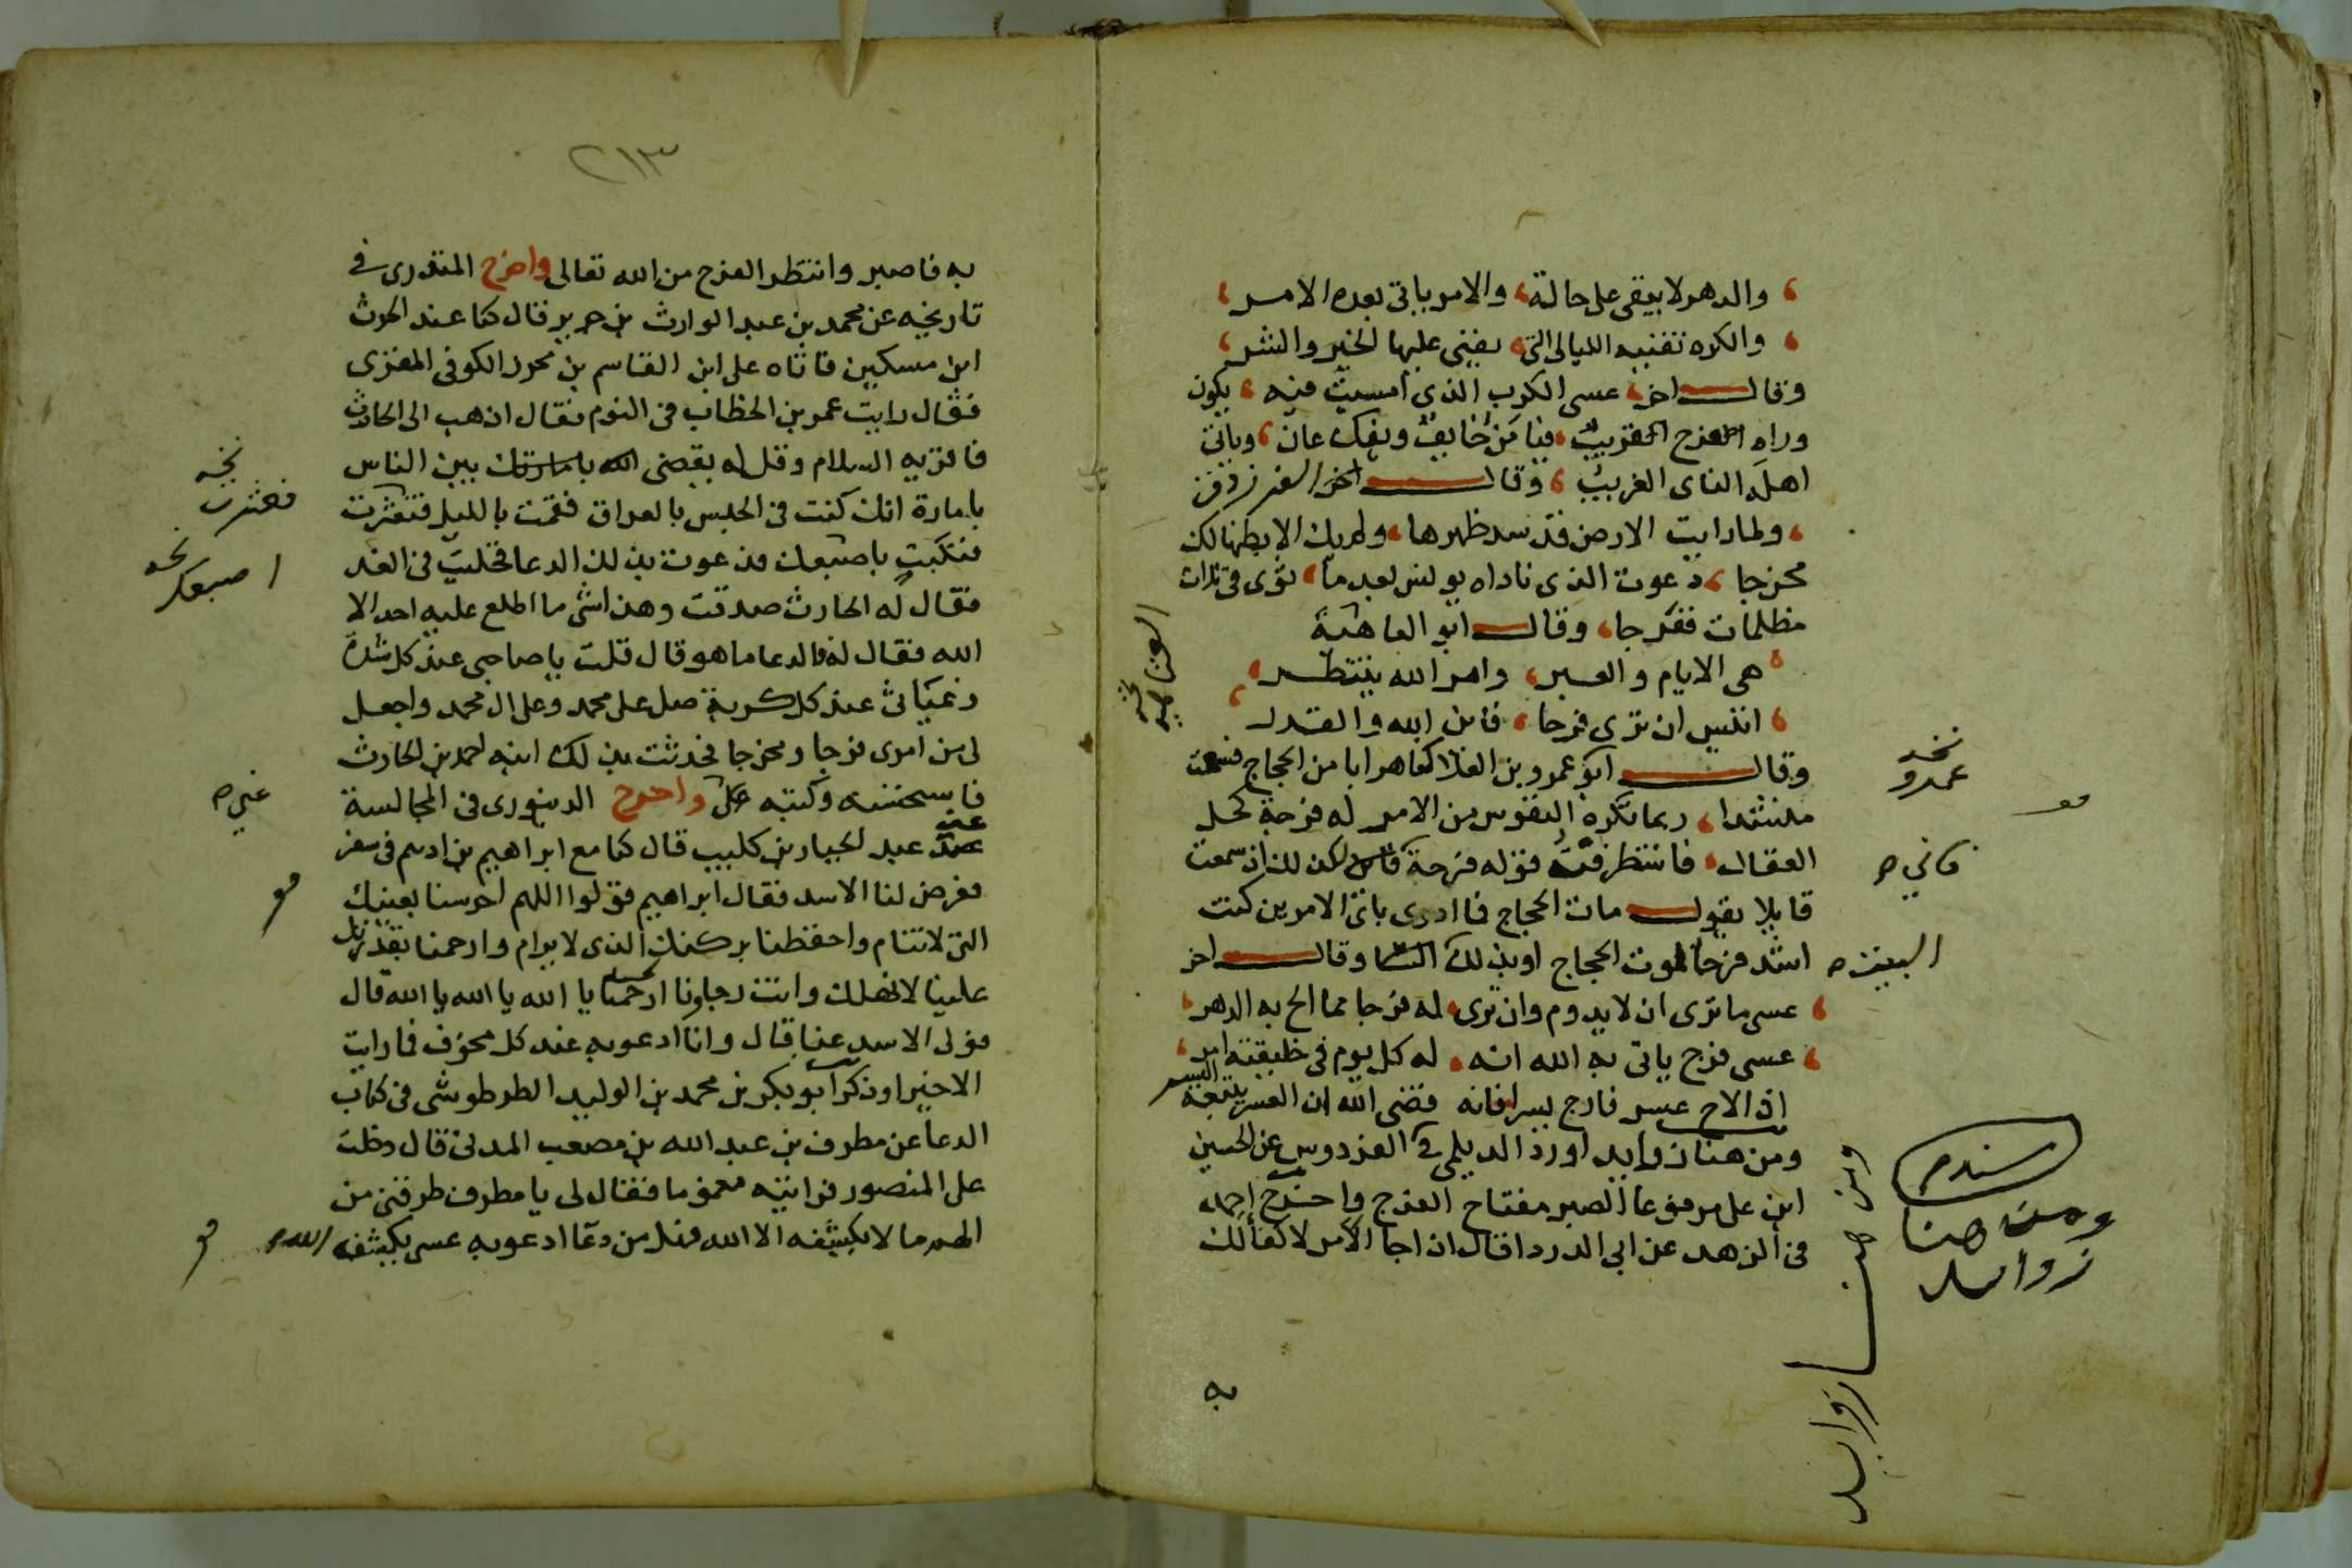 والدهر لا يبقى على حالة، والامر ياتى بعده الامر،
والكره تفنيه الليالى التى، يفنى عليها الخير والشر،
وقال اخر، عسى الكرب الذى امسيت فيه، يكون
وراه الفرج القريب، فيا من خايف ويفك عان، وياتى
اهله الناى الغريب، وقال اخر الفرزدق
ولما رايت الارض قد سد ظهرها، ولم يك الا بطنها لك
مخرجا، دعوت الذى ناداه يونس بعد ما، ثوى فى ثلاث
مظلمات ففرجا، وقال ابو العاهية
هى الايام والعبر، وامر الله ينتظر،
اتيس ان ترى فرجا، فاين الله والقدر
وقال ابو عمرو بن العلا كنا هرابا من الحجاج فسمعت
منشدا، ربما تكره النفوس من الامر له فرجة كحل
العقال، فانتظرفت قوله فرجة لكن لك اذ سمعت
قايلا يقول مات الحجاج فما ادرى باى الامرين كنت
اشد فرحا لموت الحجاج او بذلك وقال اخر
عسى ما ترى ان لا يدوم وان ترى، له فرجا مما الح به الدهر،
عسى فرج ياتى به الله انه، له كل يوم فى خليقته امر،
اذا لاح عسر فارج يسرا فانه قضى الله ان العسر يتبعه اليسر
ومن هنا زوايد اورد الديلمى فى الفردوس عن الحسين
ابن على مرفوعا الصبر مفتاح الفرج واخرج احمد
فى الزهد عن ابى الدردا قال اذا جا الامر لا كفا لك
به
العتاهية
نخه
عمرو
فانى ص
البيت ص
سندم
ومن هنا
زوايد
ومن هنا زوايد
٢١٣
به فاصبر وانتظر الفرج من الله تعالى واخرج المنذرى فى
تاريخه عن محمد بن عبد الوارث بن جرير قال كنا عند الحرث
ابن مسكين فاتاه على ابن القاسم بن محرز الكوفى المغزى
فقال رايت عمر بن الخطاب فى النوم فقال اذهب الى الحارث
فاقريه السلام وقل له يقضى بين الناس
بامارة انك كنت فى الحبس بالعراق فقمت بالليل فتعثرت
فنكبت باصبعك فدعوت بذلك الدعا فخليت فى الغد
فقال له الحارث صدقت وهذا شى ما اطلع عليه احد الا
الله فقال له فالدعا ما هو قال قلت يا صاحبى عند كل شدة
وغياثى عند كل كربة صل على محمد وعلى ال محمد واجعل
لى من امرى فرجا ومخرجا فحدثت بذلك ابنه احمد بن الحارث
فاستحسنه وكتبه واخرج الدينورى فى المجالسة
عن عبد الجبار بن كليب قال كنا مع ابراهيم بن ادهم فى سفر
فعرض لنا الاسد فقال ابراهيم قولوا اللهم احرسنا بعينك
التى لا تنام واحفظنا بركنك الذى لا يرام وارحمنا بقدرتك
علينا لا نهلك وانت رجاونا ارحمنا يا الله يا الله يا الله قال
فولى الاسد عنا قال وانا ادعو به عند كل مخوف فما رايت
الا خيرا وذكر ابو بكر بن محمد بن الوليد الطرطوشى فى كتاب
الدعا عن مطرف بن عبد الله بن مصعب المدنى قال دخلت
على المنصور فرايته مغموما فقال لى يا مطرف طرقنى من
الهم ما لا يكشفه الا الله فهل من دعا ادعو به عسى يكشفه الله
نخه
فعثرت
نخه
اصبعك
غنى ص